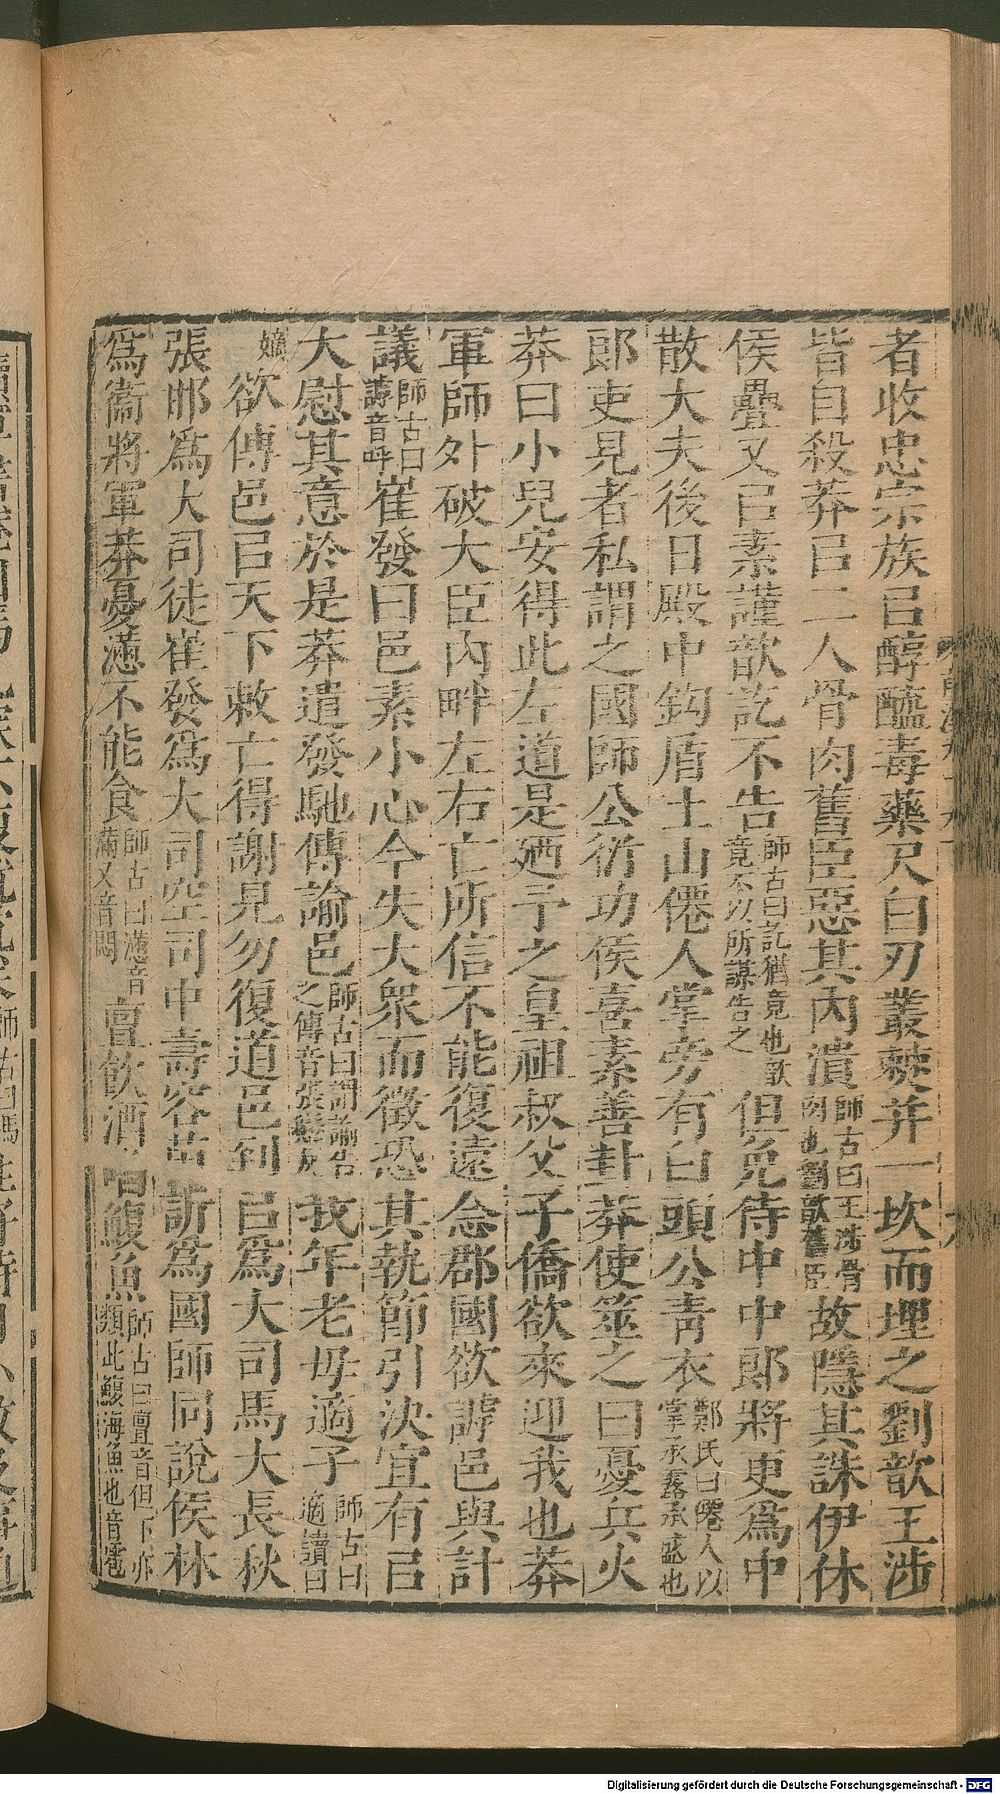 者收忠宗族㠯醇醯毒藥尺白刃叢棘并一坎而埋之劉歆王涉
皆自殺莽㠯二人骨肉舊臣惡其內潰師古曰王涉骨肉也劉歆舊臣故隱其誅伊休
侯疊又㠯素謹歆訖不告師古曰訖猶竟也歆竟不以所謀告之但免侍中中郎將更爲中
散大夫後日殿中鉤盾土山僊人掌旁有白頭公青衣鄭氏曰僊人以掌承露承盛也
郎吏見者私謂之國師公衍功侯喜素善卦莽使筮之曰憂兵火
莽曰小兒安得此左道是廼予之皇祖叔父子僑欲來迎我也莽
軍師外破大臣內畔左右亡所信不能復遠念郡國欲謼邑與計
議師古曰謼音呼崔發曰邑素小心今失大衆而徵恐其執節引決宜有㠯
大慰其意於是莽遣發馳傳諭邑師古曰謂諭告之傳音張戀反我年老毋適子師古曰適讀曰
嫡欲傳邑㠯天下敕亡得謝見勿復道邑到㠯爲大司馬大長秋
張邯爲大司徒崔發爲大司空司中壽容苗訢爲國師同說侯林
爲衞將軍莽憂懣不能食師古曰懣音滿又音悶亶飲酒啗鰒魚師古曰亶音但下亦類此鰒海魚也音雹
Digitalisierung gefördert durch die Deutsche Forschungsgemeinschaft - DFG